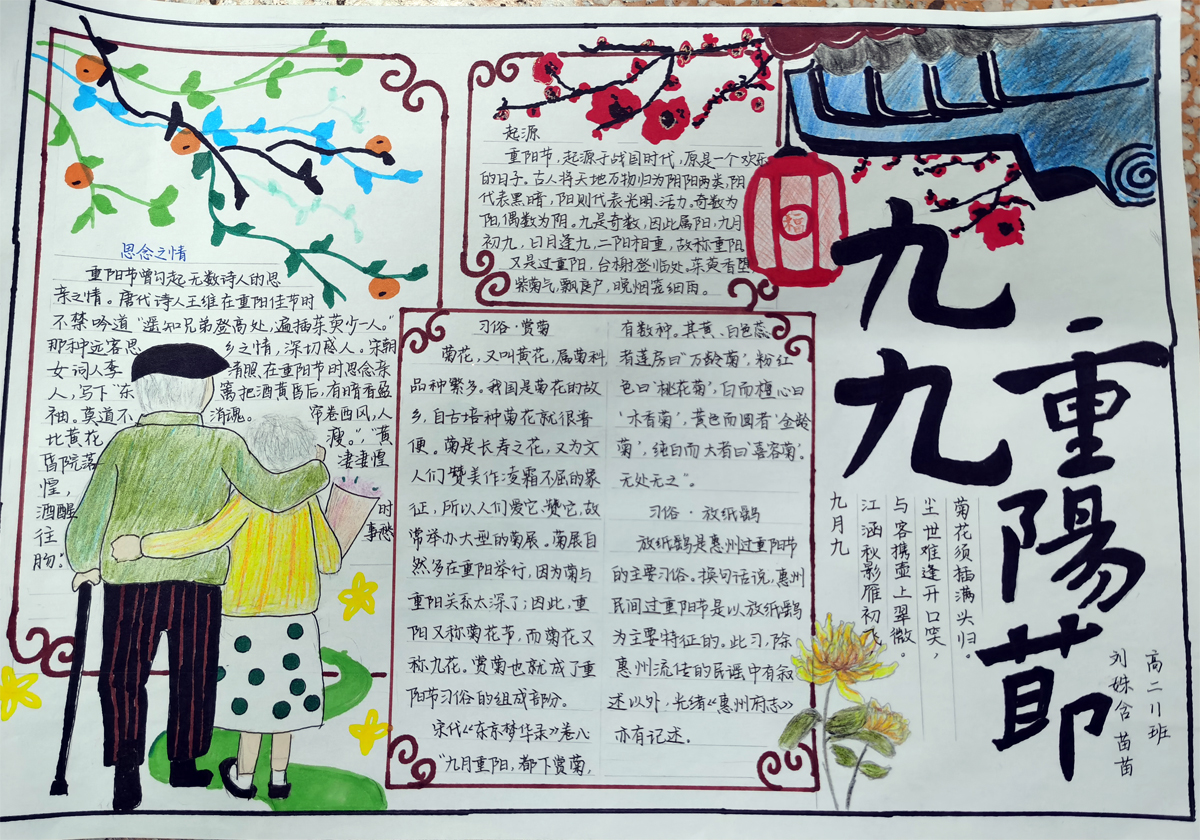 九九
重陽節
菊花须插满头归。
尘世难逢开口笑，
与客携壶上翠微。
江涵秋影雁初飞
九月九
高二11班
刘姝含苗苗
福
起源
重阳节，起源于战国时代，原是一个欢乐
的日子。古人将天地万物归为阴阳两类，阴
代表黑暗，阳则代表光明、活力。奇数为
阳，偶数为阴。九是奇数，因此属阳，九月
初九，日月逢九，二阳相重，故称重阳
又是过重阳，台榭登临处，茱萸香坠
紫菊气，飘庭户，晚烟笼细雨。
思念之情
重阳节曾勾起无数诗人的思
亲之情。唐代诗人王维在重阳佳节时
不禁吟道“遥知兄弟登高处，遍插茱萸少一人。”
那种远客思乡之情，深切感人。宋朝
女词人李清照，在重阳节时思念亲
人，写下“东篱把酒黄昏后，有暗香盈
袖。莫道不消魂。帘卷西风，人
比黄花瘦。”“黄
昏院落凄凄惶
惶，
酒醒时
往事愁
肠”
习俗·赏菊
菊花，又叫黄花，属菊科，
品种繁多。我国是菊花的故
乡，自古培种菊花就很普
便。菊是长寿之花，又为文
人们赞美作凌霜不屈的象
征，所以人们爱它、赞它，故
常举办大型的菊展。菊展自
然多在重阳举行，因为菊与
重阳关系太深了；因此，重
阳又称菊花节，而菊花又
称九花。赏菊也就成了重
阳节习俗的组成部分。
宋代《东京梦华录》卷八
“九月重阳，都下赏菊，
有数种。其黄、白色蕊
者莲房曰‘万龄菊’，粉红
色曰‘桃花菊’，白而檀心曰
‘木香菊’，黄色而圆者‘金龄
菊’，纯白而大者曰‘喜容菊’。
无处无之”。
习俗·放纸鹞
放纸鹞是惠州过重阳节
的主要习俗。换句话说，惠州
民间过重阳节是以放纸鹞
为主要特征的。此习，除
惠州流传的民谣中有叙
述以外，光绪《惠州府志》
亦有记述。